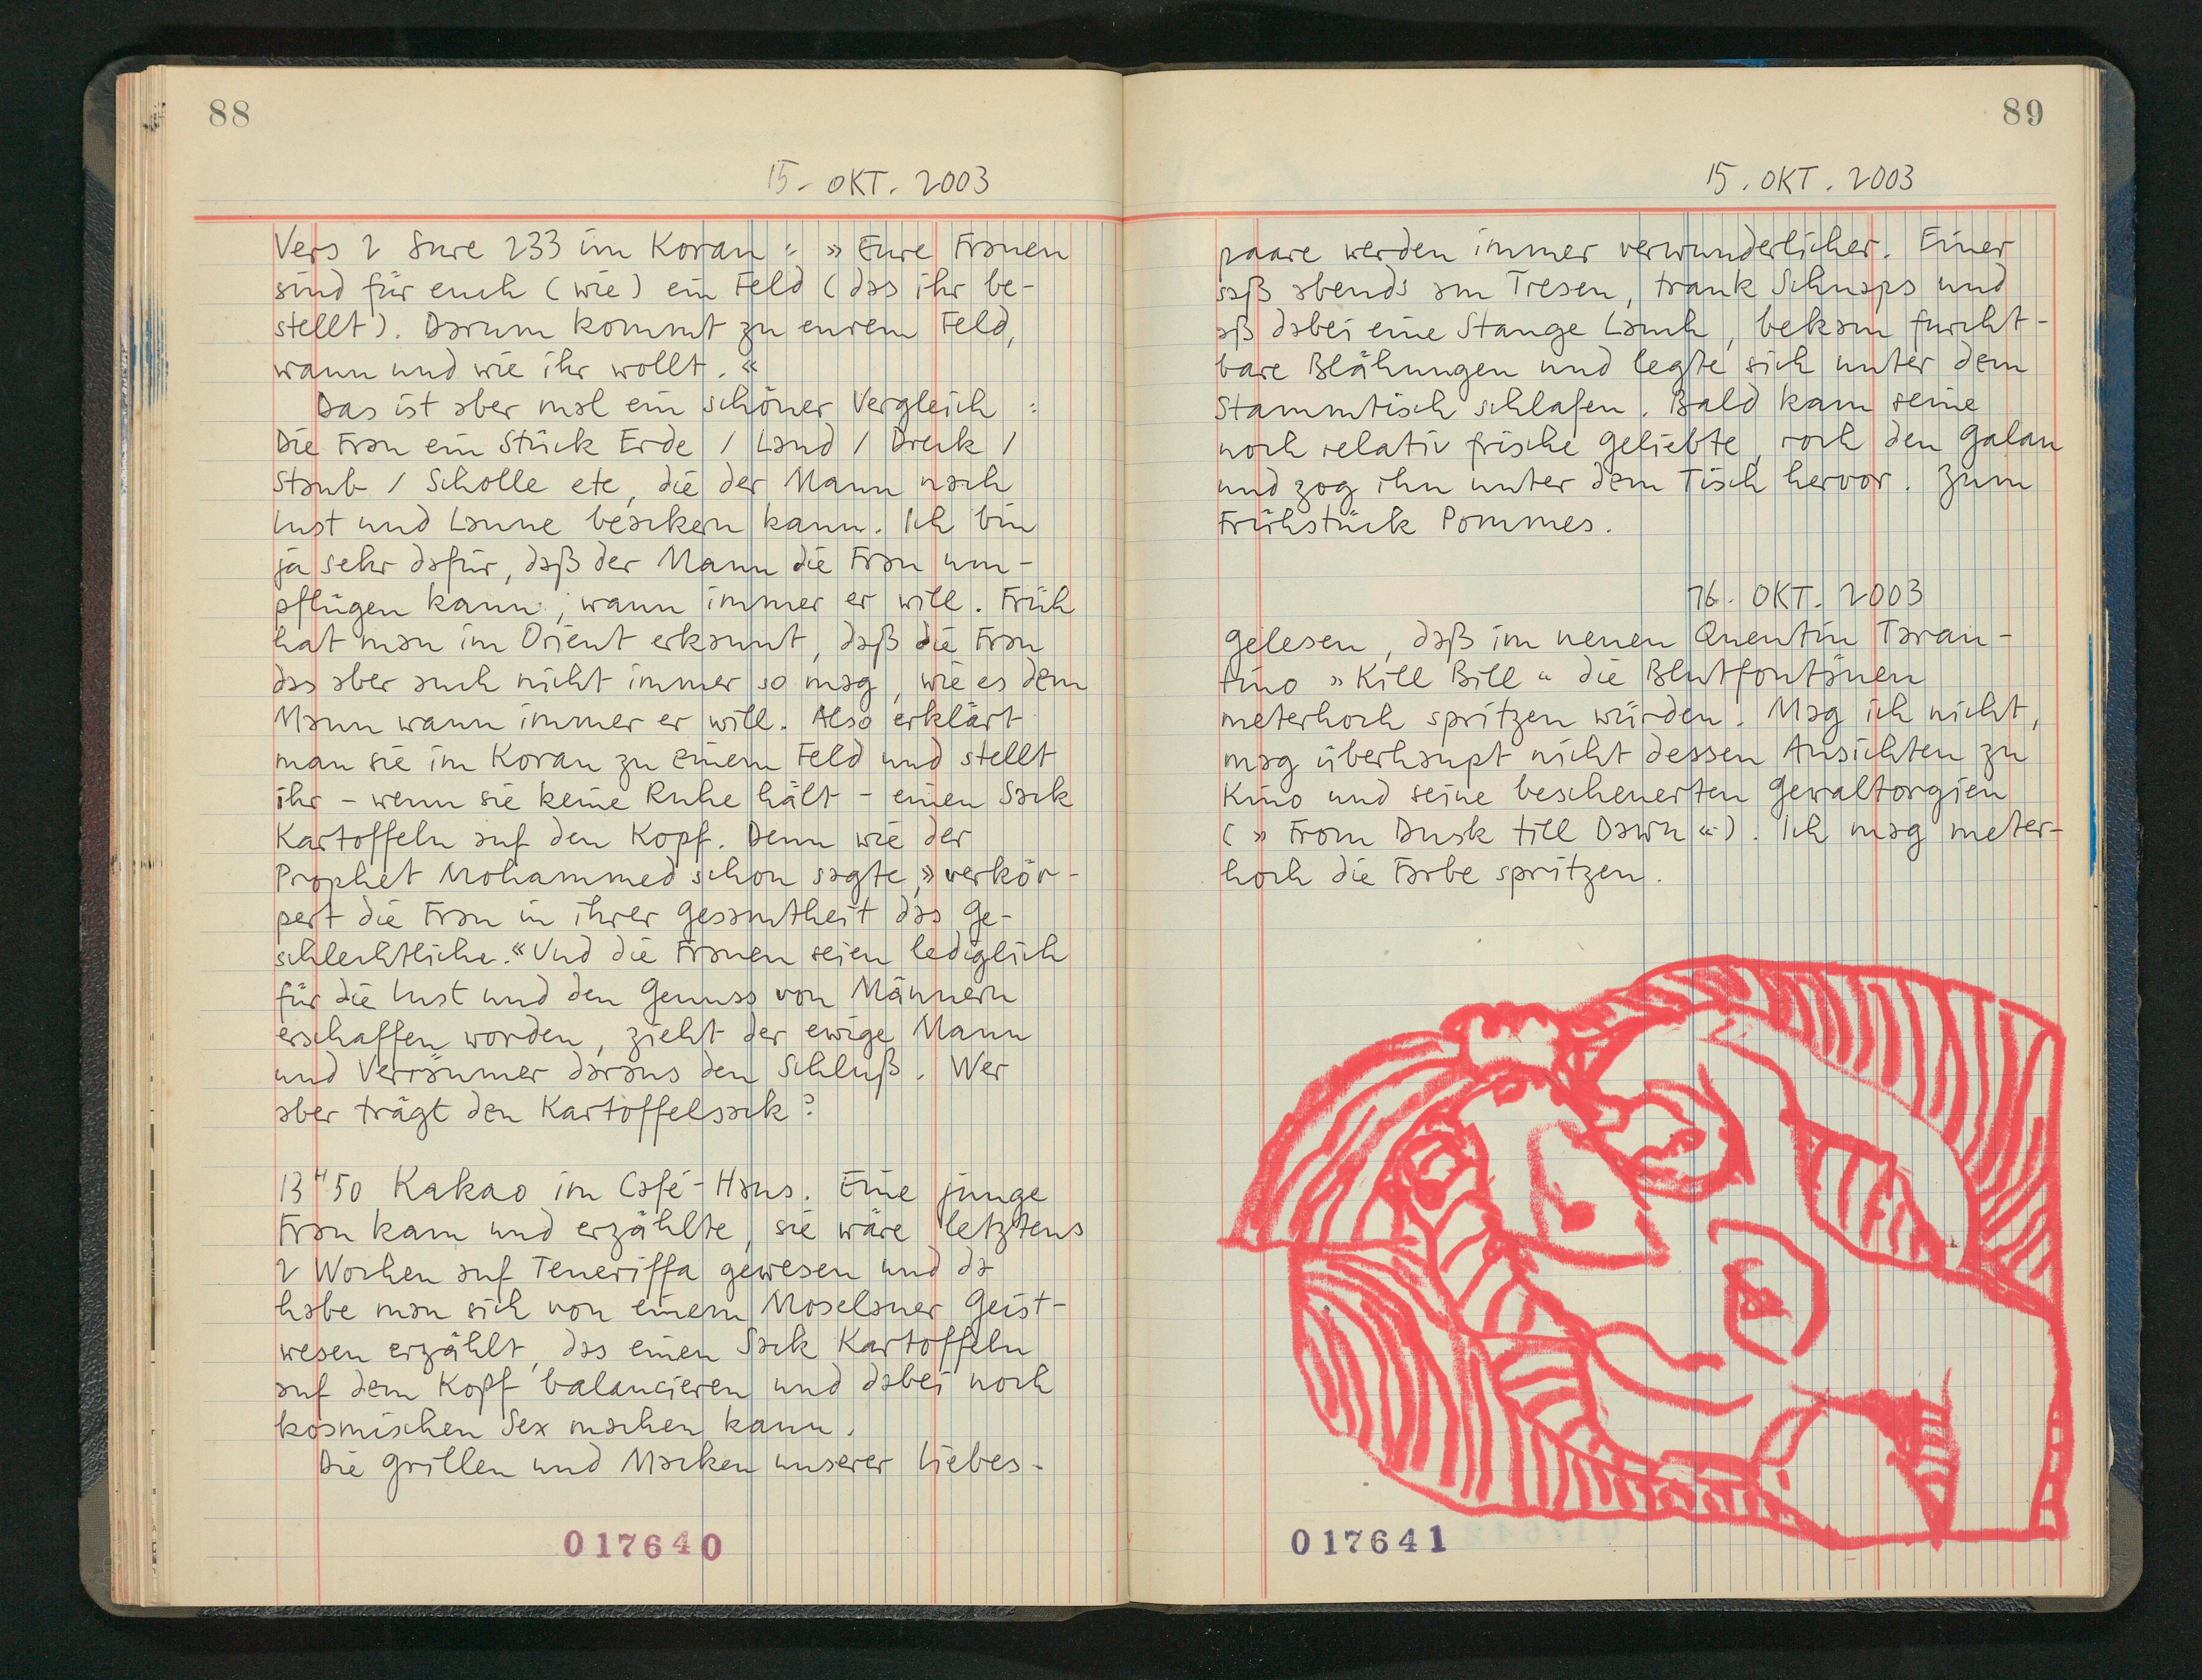 88
15. OKT. 2003
Vers 2 Sure 233 im Koran : » Eure Frauen
sind für euch (wie) ein Feld (das ihr be-
stellt). Darum kommt zu eurem Feld,
wann und wie ihr wollt. «
Das ist aber mal ein schöner Vergleich :
Die Frau ein Stück Erde / Land / Dreck /
Staub / Scholle etc, die der Mann nach
Lust und Laune beackern kann. Ich bin
ja sehr dafür, daß der Mann die Frau um-
pflügen kann, wann immer er will. Früh
hat man im Orient erkannt, daß die Frau
das aber auch nicht immer so mag, wie es dem
Mann wann immer er will. Also erklärt
man sie im Koran zu einem Feld und stellt
ihr – wenn sie keine Ruhe hält – einen Sack
Kartoffeln auf den Kopf. Denn wie der
Prophet Mohammed schon sagte, » verkör-
pert die Frau in ihrer Gesamtheit das Ge-
schlechtliche. « Und die Frauen seien lediglich
für die Lust und den Genuss von Männern
erschaffen worden, zieht der ewige Mann
und Verräumer daraus den Schluß. Wer
aber trägt den Kartoffelsack?
13 H 50 Kakao im Café-Haus. Eine junge
Frau kam und erzählte, sie wäre letztens
2 Wochen auf Teneriffa gewesen und da
habe man sich von einem Moselaner Geist-
wesen erzählt, das einen Sack Kartoffeln
auf dem Kopf balancieren und dabei noch
kosmischen Sex machen kann.
Die Grillen und Macken unserer Liebes-
017640
89
15. OKT. 2003
paare werden immer verwunderlicher. Einer
saß abends am Tresen, trank Schnaps und
aß dabei eine Stange Lauch, bekam furcht-
bare Blähungen und legte sich unter dem
Stammtisch schlafen. Bald kam seine
noch relativ frische Geliebte, roch den Galan
und zog ihn unter dem Tisch hervor. Zum
Frühstück Pommes.
16. OKT. 2003
Gelesen, daß im neuen Quentin Taran-
tino » Kill Bill « die Blutfontänen
meterhoch spritzen würden. Mag ich nicht,
mag überhaupt nicht dessen Ansichten zu
Kino und seine bescheuerten Gewaltorgien
( » From Dusk till Dawn « ). Ich mag meter-
hoch die Farbe spritzen.
017641